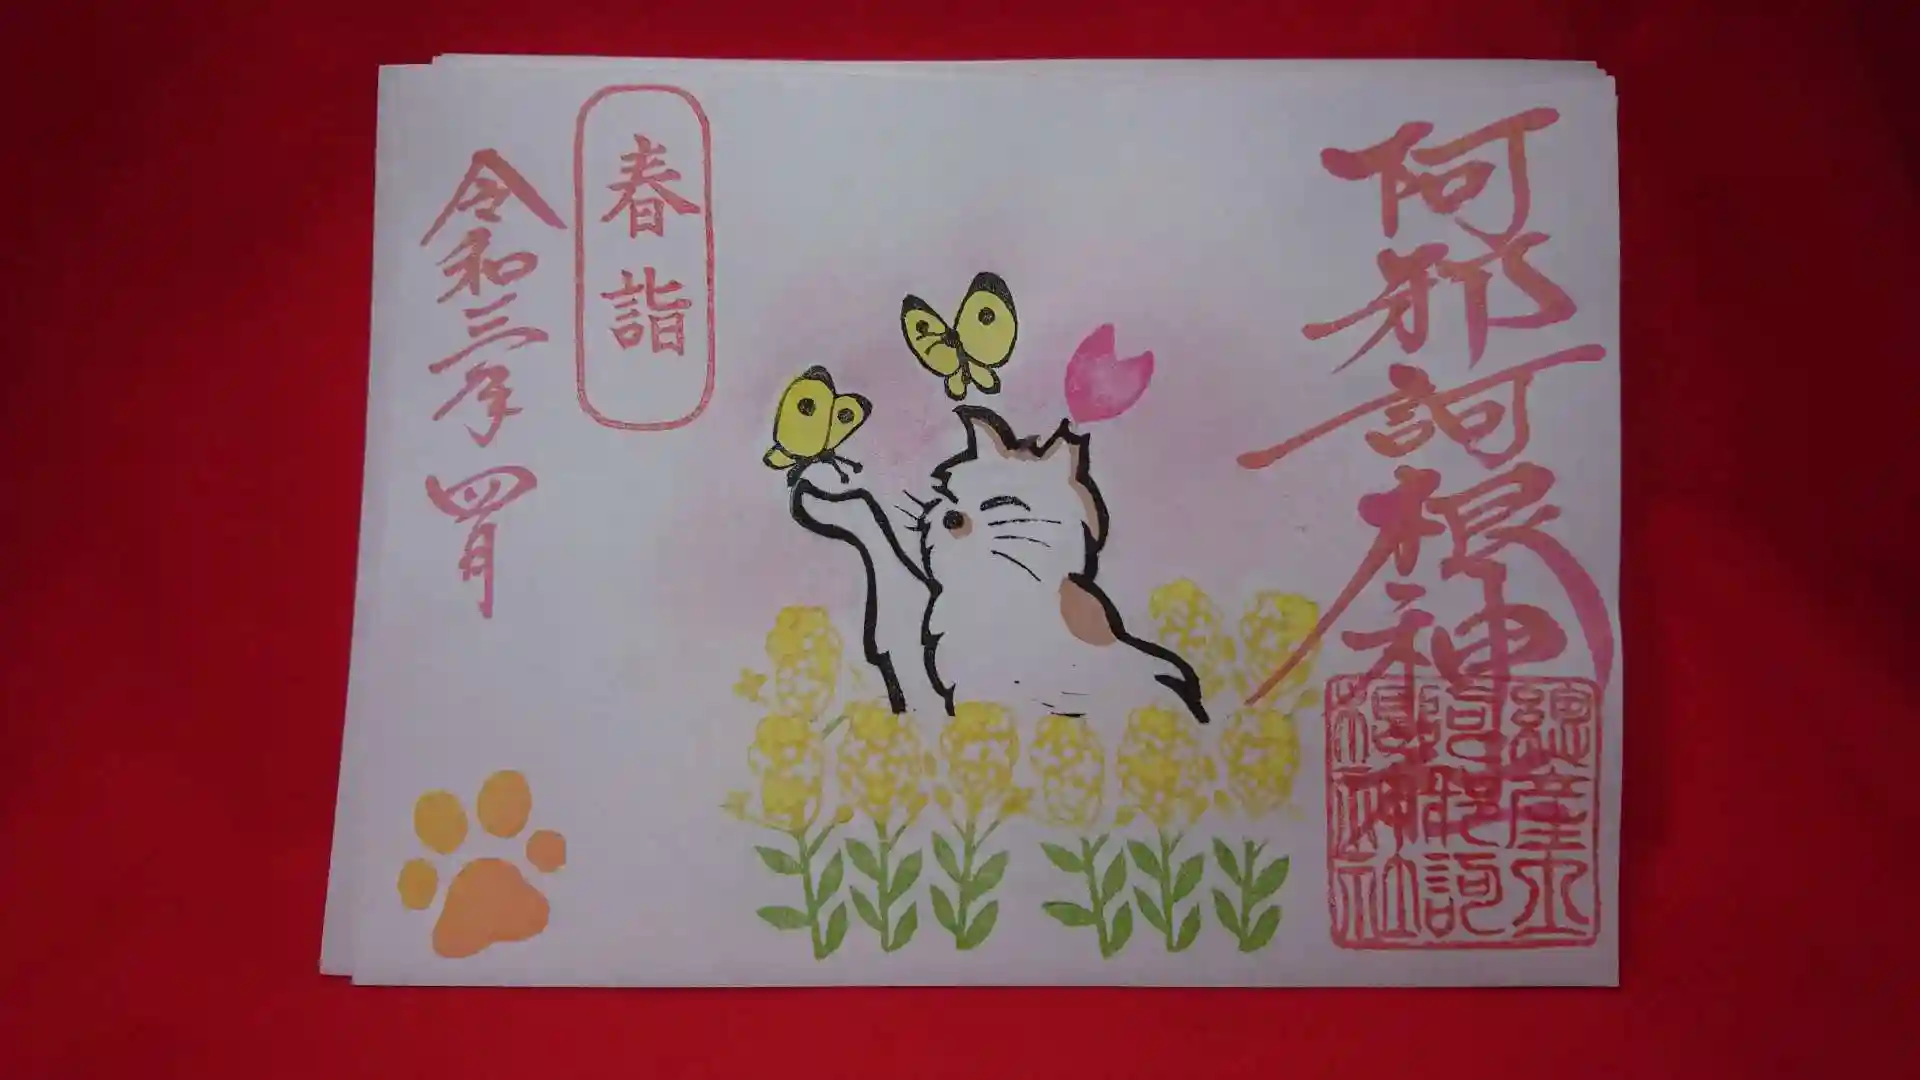 阿邪訶根神
總産土
阿邪訶
根神社
春詣
令和三年四月